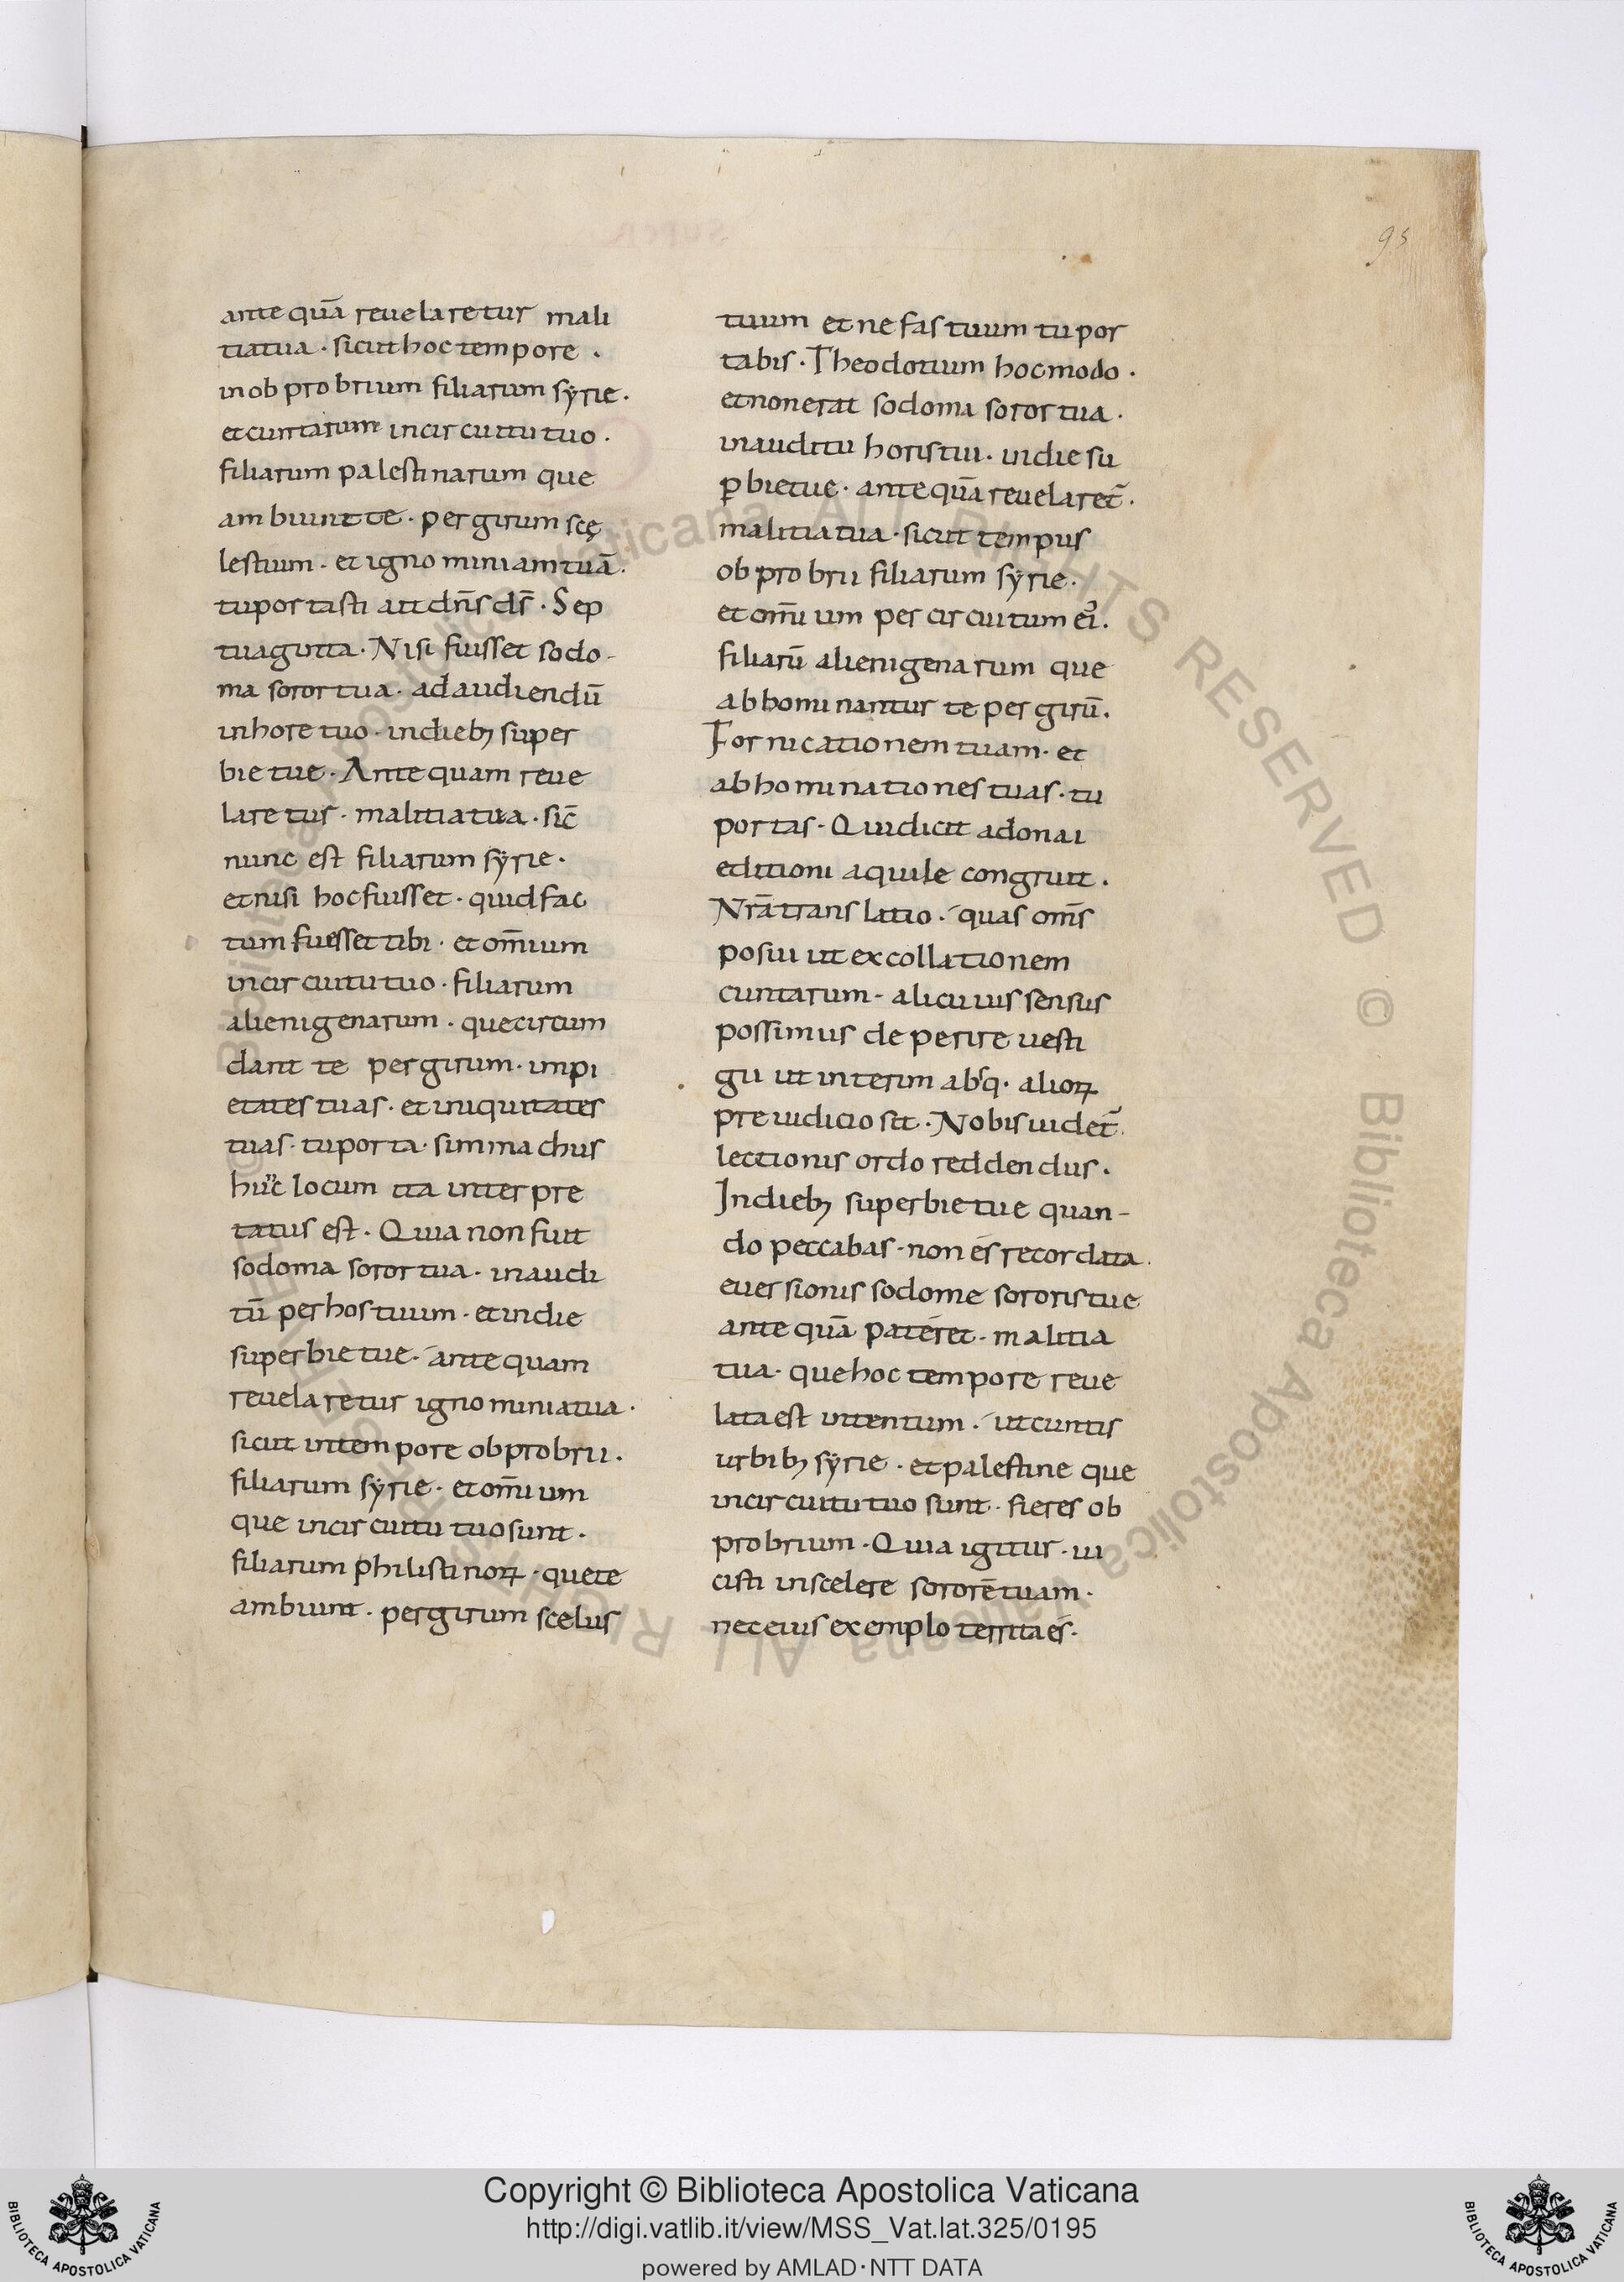 95
ante quā reuelaretur mali
tia tua · sicut hoc tempore ·
in obprobrium filiarum syrie ·
et cuntarum in circuitu tuo ·
filiarum palestinarum que
ambiunt te · per girum scę
lestium · et ignominiam tuā ·
tu portasti ait dn̄s ds̄ · Sep
tuaginta · Nisi fuisset sodo-
ma soror tua · ad audiendū
in hore tuo · in dieb; super
bie tue · Ante quam reue
laretur · malitia tua · sic̄
nunc est filiarum syrie ·
et nisi hoc fuisset · quid fac
tum fuesset tibi · et om̄ium
in circuitu tuo · filiarum
alienigenarum · que circum
dant te per girum · impi
etates tuas · et iniquitates
tuas · tu porta · simmachus
huc̄ locum ita interpre
tatus est · Quia non fuit
sodoma soror tua · in audi
tū per hos tuum · et in die
superbie tue · ante quam
reuelaretur ignominia tua ·
sicut in tempore obprobrii ·
filiarum syrie · et om̄ium
que in circuitu tuo sunt ·
filiarum philistinoꝝ · que te
ambiunt · per girum scelus
tuum et nefas tuum tu por
tabis · Theodotium hoc modo ·
et non erat sodoma soror tua ·
in auditu horis tui · in die su
ꝑbie tue · ante quā reuelaret̄ ·
malitia tua · sicut tempus
obprobrii filiarum syrie ·
et om̄ium per circuitum ei᾽ ·
filiarū alienigenarum que
abhominantur te per girū ·
Fornicationem tuam · et
abhominationes tuas · tu
portas · Qui dicit adonai
editioni aquile congruit ·
Nrā translatio · quas om̄s
posui ut ex collationem
cuntarum · alicuius sensus
possimus deperire uesti
gii ut interim absq · alioꝝ
preiudicio sit · Nobis uidet̄ ·
lectionis ordo reddendus ·
In dieb; superbie tue quan-
do peccabas · non és recordata ·
euersionis sodome sororis tue
ante quā pateret · malitia
tua · que hoc tempore reue
lata est intentum · ut cuntis
urbib; syrie · et palestine que
in circuitu tuo sunt · fieres ob
probrium · Quia igitur · ui
cisti in scelere sororē tuam ·
nec eius exemplo territa és ·
© Biblioteca Apostolica Vaticana ALL RIGHTS RESERVED © Biblioteca Apostolica Vaticana ALL RIGHTS RESERVED
Copyright © Biblioteca Apostolica Vaticana
http://digi.vatlib.it/view/MSS_Vat.lat.325/0195
powered by AMLAD·NTT DATA
BIBLIOTECA APOSTOLICA VATICANA
BIBLIOTECA APOSTOLICA VATICANA